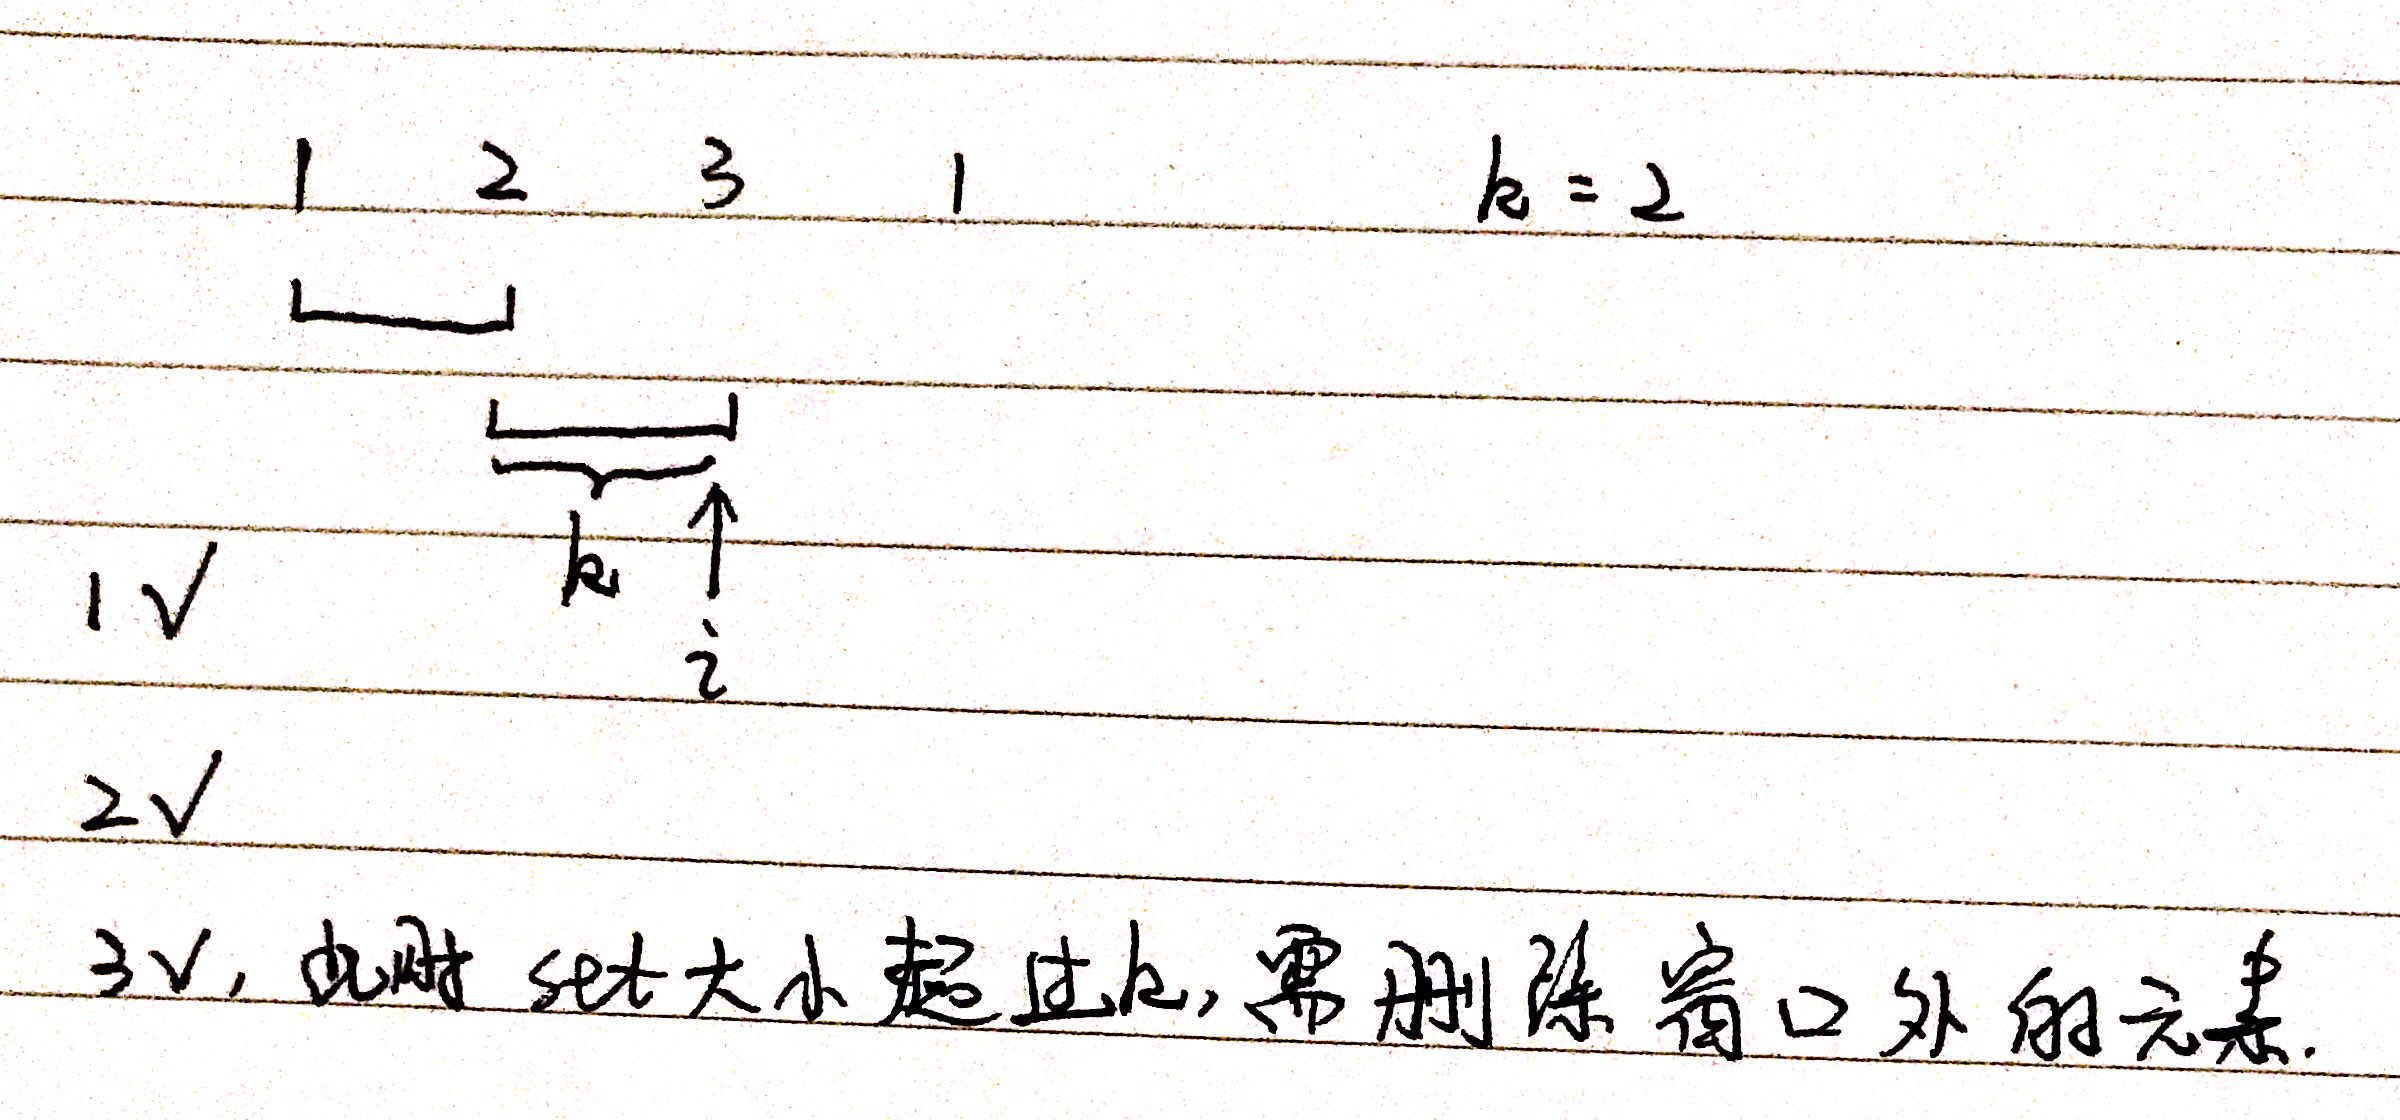 1 2 3 1 k = 2
k
i
1√
2√
3√, 此时 set 大小超过k, 需删除窗口外的元素.